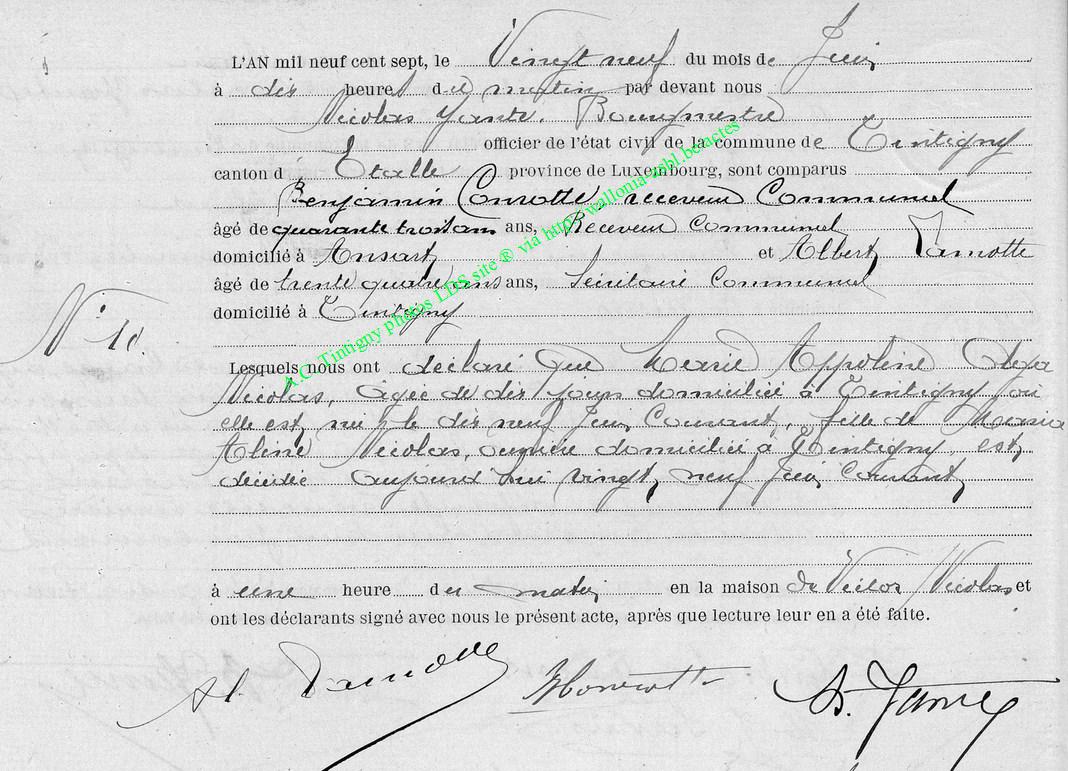 L'AN mil neuf cent sept, le Vingt neuf du mois de Juin
à dix heures du matin par devant nous
Nicolas Yante, Bourgmestre
officier de l'état civil de la commune de Tintigny
canton d' Etalle province de Luxembourg, sont comparus
Benjamin Conrotte, receveur Communal
âgé de quarante trois ans ans, Receveur communal
domicilié à Ansart et Albert Lamotte
âgé de trente quatre ans ans, Secrétaire Communal
domicilié à Tintigny
N° 10.
Lesquels nous ont déclaré que Marie Appoline
Nicolas, âgée de dix jours domiciliée à Tintigny où
elle est née le dix neuf Juin Courant, fille de Maria
Aline Nicolas, domiciliée à Tintigny, est
décédée aujourd'hui vingt neuf Juin courant
à une heure du matin en la maison de Victor Nicolas et
ont les déclarants signé avec nous le présent acte, après que lecture leur en a été faite.
Al. Lamotte B Conrotte N. Yante
A.C. Tintigny photos LDS site ® via http://wallonia-asbl.be/actes